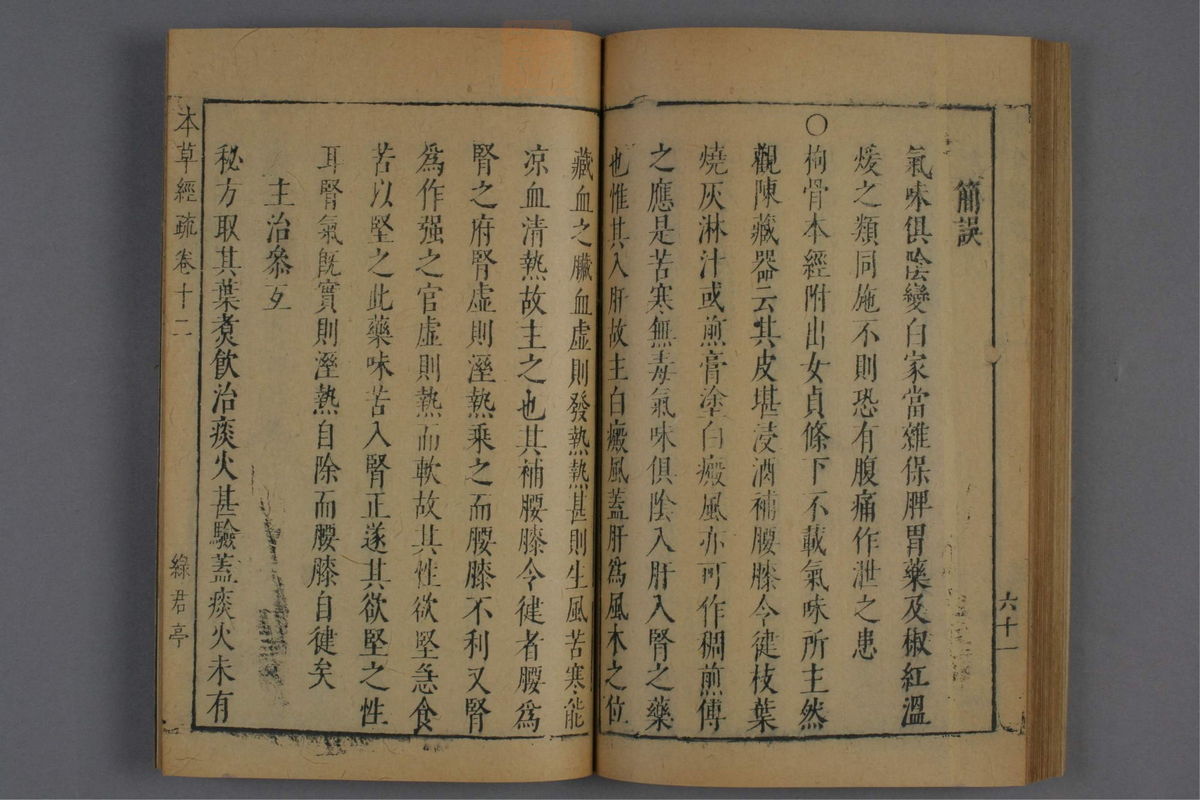 六十一
簡誤
氣味俱陰變白家當雜保脾胃藥及椒紅溫
煖之類同施不則恐有腹痛作泄之患
〇枸骨本經附出女貞條下不載氣味所主然
觀陳藏器云其皮堪浸酒補腰膝令健枝葉
燒灰淋汁或煎膏塗白癜風亦可作稠煎傅
之應是苦寒無毒氣味俱陰入肝入腎之藥
也惟其入肝故主白癜風蓋肝為風木之位
藏血之臟血虛則發熱熱甚則生風苦寒能
凉血清熱故主之也其補腰膝令健者腰為
腎之府腎虛則溼熱乘之而腰膝不利又腎
為作强之官虛則熱而軟故其性欲堅急食
苦以堅之此藥味苦入腎正遂其欲堅之性
耳腎氣旣實則溼熱自除而腰膝自健矣
主治叅互
秘方取其葉煑飲治痰火甚驗蓋痰火未有
本草經疏卷十二
綠君亭